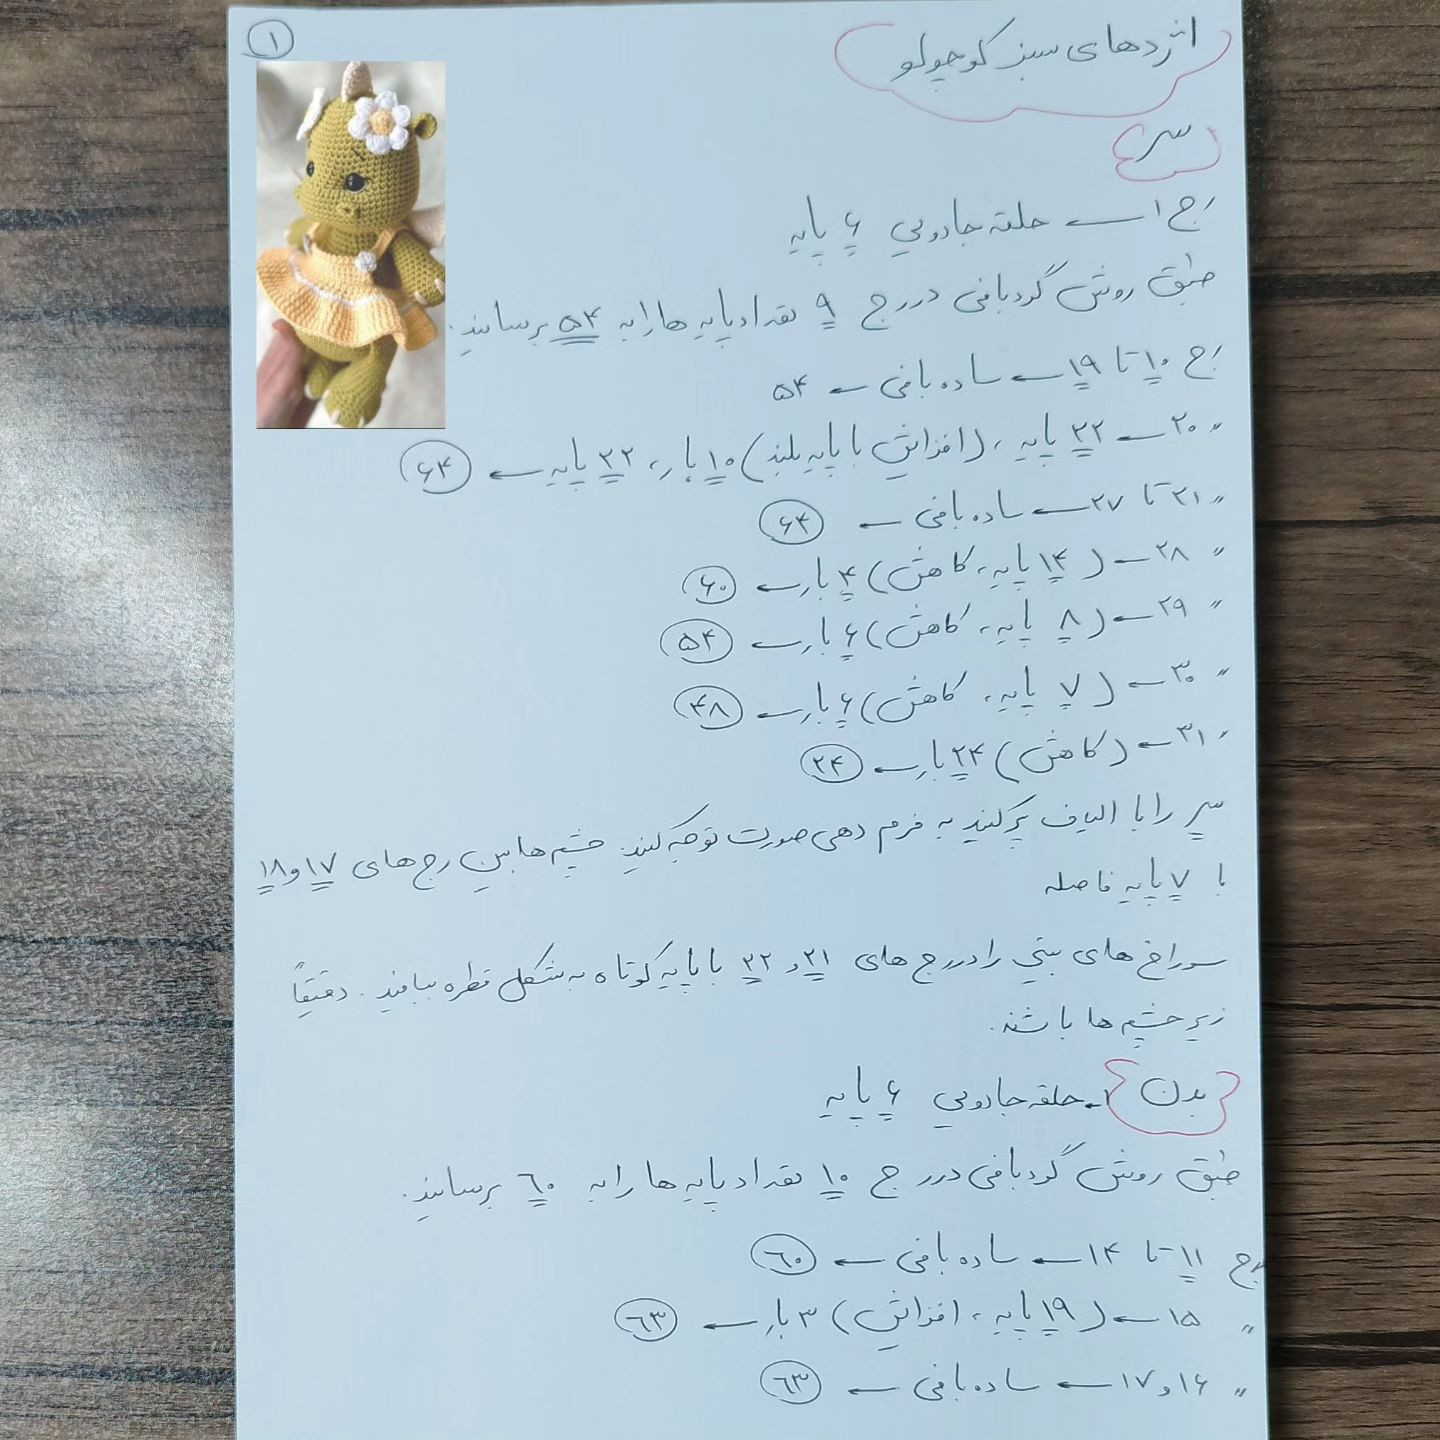 ۱
اژدهای سبز کوچولو
سر
رج ۱ ← حلقه جادویی ۶ پایه
طبق روش گردبافی در رج ۹ تعداد پایه ها را به ۵۴ برسانید.
رج ۱۰ تا ۱۹ ← ساده بافی ← ۵۴
〃 ۲۰ ← ۲۲ پایه ، (افزایش با پایه بلند) ۱۰ بار ، ۲۲ پایه ← ۶۴
〃 ۲۱ تا ۲۷ ← ساده بافی ← ۶۴
〃 ۲۸ ← (۱۴ پایه ، کاهش) ۴ بار ← ۶۰
〃 ۲۹ ← (۸ پایه ، کاهش) ۶ بار ← ۵۴
〃 ۳۰ ← (۷ پایه ، کاهش) ۶ بار ← ۴۸
〃 ۳۱ ← (کاهش) ۲۴ بار ← ۲۴
سر را با الیاف پر کنید به فرم دهی صورت توجه کنید. چشم ها بین رج های ۱۷ و ۱۸
با ۷ پایه فاصله
سوراخ های بینی را در رج های ۲۱ و ۲۲ با پایه کوتاه به شکل قطره ببافید. دقیقاً
زیر چشم ها باشند.
بدن ۱- حلقه جادویی ۶ پایه
طبق روش گردبافی در رج ۱۰ تعداد پایه ها را به ۶۰ برسانید.
رج ۱۱ تا ۱۴ ← ساده بافی ← ۶۰
〃 ۱۵ ← (۱۹ پایه ، افزایش) ۳ بار ← ۶۳
〃 ۱۶ و ۱۷ ← ساده بافی ← ۶۳